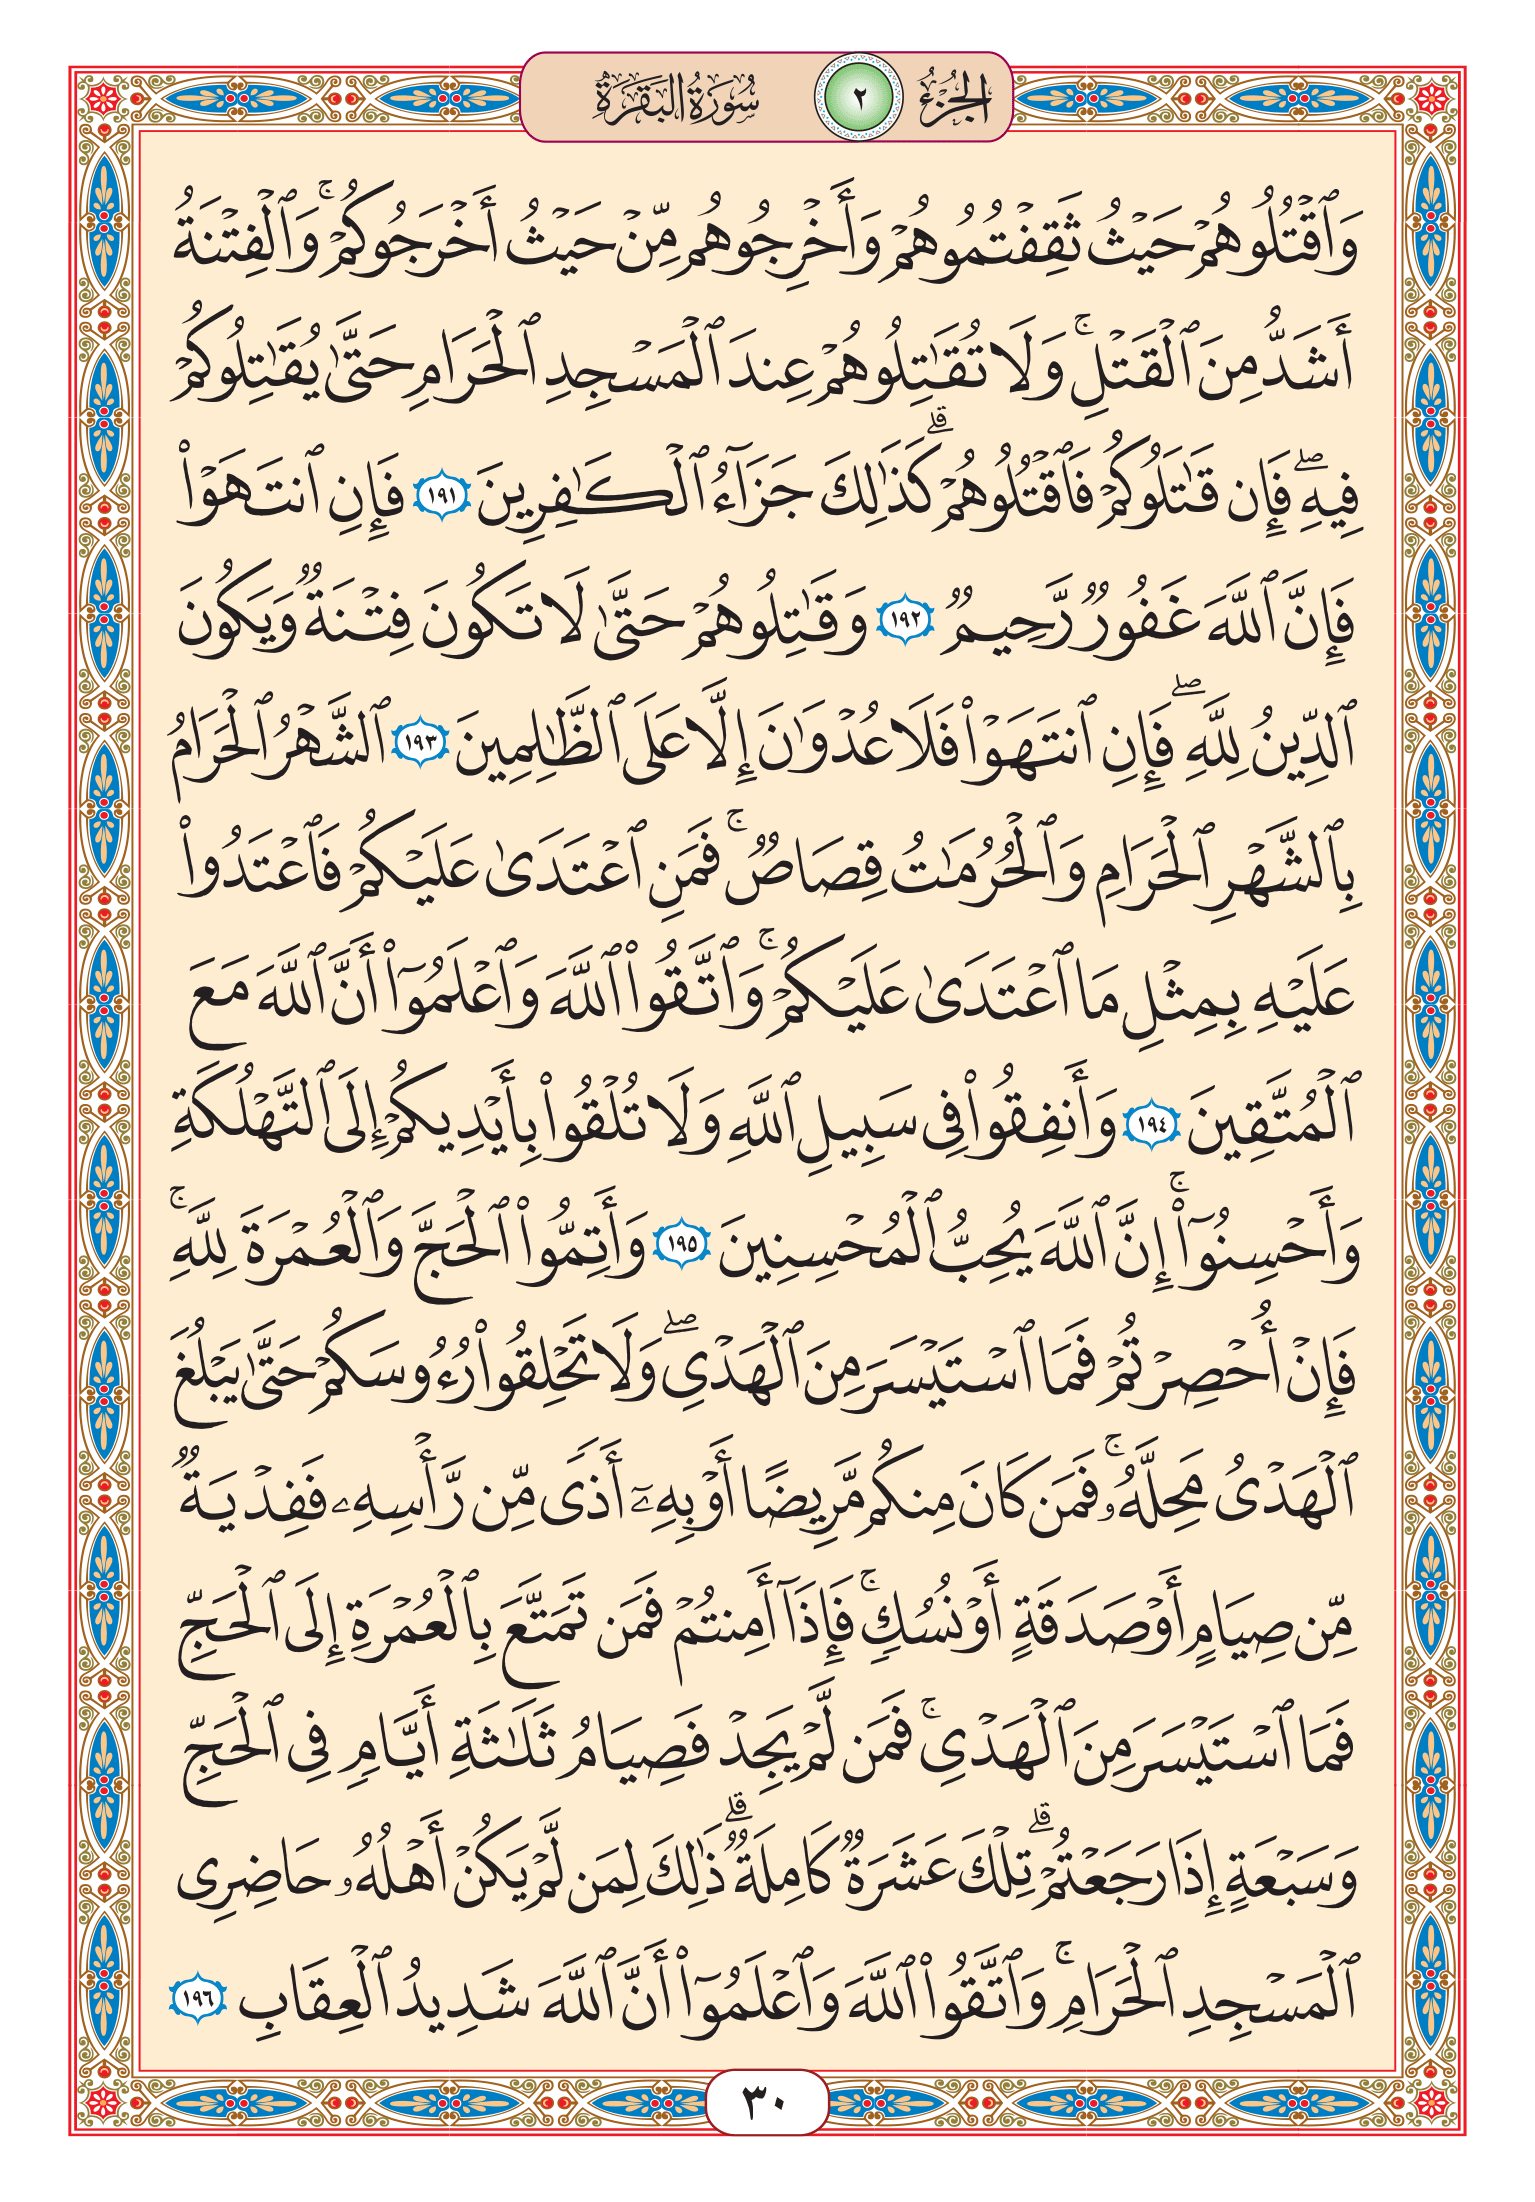 الجزء ٢ سورة البقرة
وَٱقۡتُلُوهُمۡ حَيۡثُ ثَقِفۡتُمُوهُمۡ وَأَخۡرِجُوهُم مِّنۡ حَيۡثُ أَخۡرَجُوكُمۡۚ وَٱلۡفِتۡنَةُ
أَشَدُّ مِنَ ٱلۡقَتۡلِۚ وَلَا تُقَٰتِلُوهُمۡ عِندَ ٱلۡمَسۡجِدِ ٱلۡحَرَامِ حَتَّىٰ يُقَٰتِلُوكُمۡ
فِيهِۖ فَإِن قَٰتَلُوكُمۡ فَٱقۡتُلُوهُمۡۗ كَذَٰلِكَ جَزَآءُ ٱلۡكَٰفِرِينَ ١٩١ فَإِنِ ٱنتَهَوۡاْ
فَإِنَّ ٱللَّهَ غَفُورٞ رَّحِيمٞ ١٩٢ وَقَٰتِلُوهُمۡ حَتَّىٰ لَا تَكُونَ فِتۡنَةٞ وَيَكُونَ
ٱلدِّينُ لِلَّهِۖ فَإِنِ ٱنتَهَوۡاْ فَلَا عُدۡوَٰنَ إِلَّا عَلَى ٱلظَّٰلِمِينَ ١٩٣ ٱلشَّهۡرُ ٱلۡحَرَامُ
بِٱلشَّهۡرِ ٱلۡحَرَامِ وَٱلۡحُرُمَٰتُ قِصَاصٞۚ فَمَنِ ٱعۡتَدَىٰ عَلَيۡكُمۡ فَٱعۡتَدُواْ
عَلَيۡهِ بِمِثۡلِ مَا ٱعۡتَدَىٰ عَلَيۡكُمۡۚ وَٱتَّقُواْ ٱللَّهَ وَٱعۡلَمُوٓاْ أَنَّ ٱللَّهَ مَعَ
ٱلۡمُتَّقِينَ ١٩٤ وَأَنفِقُواْ فِي سَبِيلِ ٱللَّهِ وَلَا تُلۡقُواْ بِأَيۡدِيكُمۡ إِلَى ٱلتَّهۡلُكَةِ
وَأَحۡسِنُوٓاْۚ إِنَّ ٱللَّهَ يُحِبُّ ٱلۡمُحۡسِنِينَ ١٩٥ وَأَتِمُّواْ ٱلۡحَجَّ وَٱلۡعُمۡرَةَ لِلَّهِۚ
فَإِنۡ أُحۡصِرۡتُمۡ فَمَا ٱسۡتَيۡسَرَ مِنَ ٱلۡهَدۡيِۖ وَلَا تَحۡلِقُواْ رُءُوسَكُمۡ حَتَّىٰ يَبۡلُغَ
ٱلۡهَدۡيُ مَحِلَّهُۥۚ فَمَن كَانَ مِنكُم مَّرِيضًا أَوۡ بِهِۦٓ أَذٗى مِّن رَّأۡسِهِۦ فَفِدۡيَةٞ
مِّن صِيَامٍ أَوۡ صَدَقَةٍ أَوۡ نُسُكٖۚ فَإِذَآ أَمِنتُمۡ فَمَن تَمَتَّعَ بِٱلۡعُمۡرَةِ إِلَى ٱلۡحَجِّ
فَمَا ٱسۡتَيۡسَرَ مِنَ ٱلۡهَدۡيِۚ فَمَن لَّمۡ يَجِدۡ فَصِيَامُ ثَلَٰثَةِ أَيَّامٖ فِي ٱلۡحَجِّ
وَسَبۡعَةٍ إِذَا رَجَعۡتُمۡۗ تِلۡكَ عَشَرَةٞ كَامِلَةٞۗ ذَٰلِكَ لِمَن لَّمۡ يَكُنۡ أَهۡلُهُۥ حَاضِرِي
ٱلۡمَسۡجِدِ ٱلۡحَرَامِۚ وَٱتَّقُواْ ٱللَّهَ وَٱعۡلَمُوٓاْ أَنَّ ٱللَّهَ شَدِيدُ ٱلۡعِقَابِ ١٩٦
٣٠